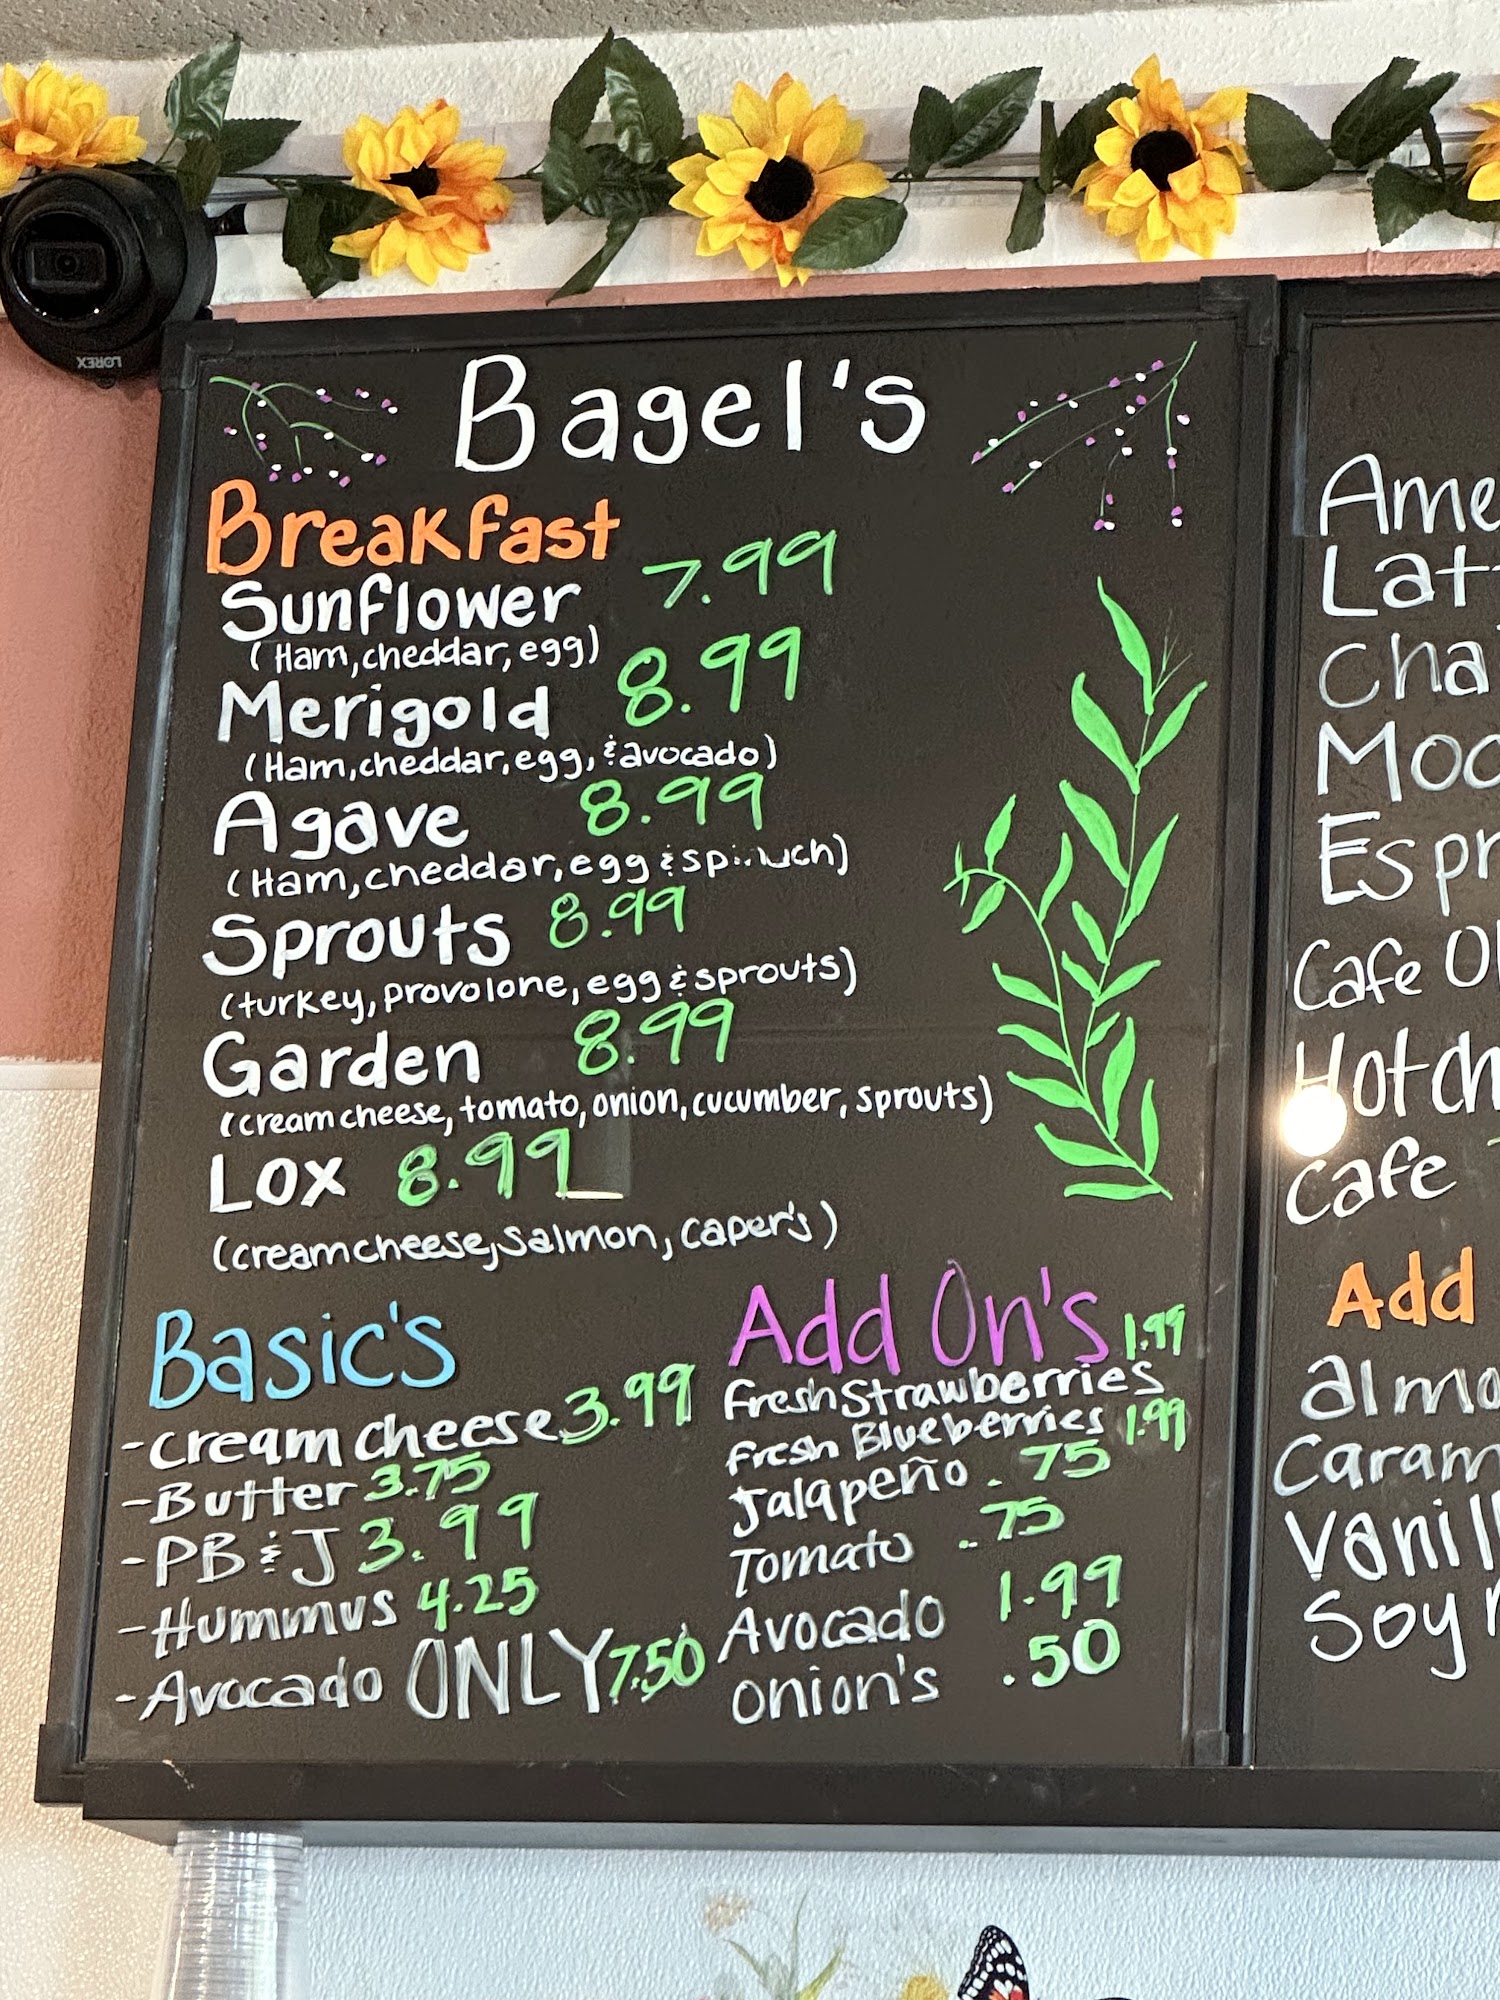 LOREX
Bagel's
Breakfast
Sunflower 7.99
(Ham, cheddar, egg)
Merigold 8.99
(Ham, cheddar, egg, & avocado)
Agave 8.99
(Ham, cheddar, egg & spinach)
Sprouts 8.99
(turkey, provolone, egg & sprouts)
Garden 8.99
(cream cheese, tomato, onion, cucumber, sprouts)
Lox 8.99
(cream cheese, Salmon, caper's)
Basic's
-cream cheese 3.99
-Butter 3.75
-PB & J 3.99
-Hummus 4.25
-Avocado ONLY 7.50
Add On's
Fresh Strawberries 1.99
Fresh Blueberries 1.99
Jalapeño .75
Tomato .75
Avocado 1.99
onion's .50
Ame
Lat
Cha
Moc
Espr
Cafe Ol
Hot ch
Cafe
Add
almo
Caram
Vanill
Soy